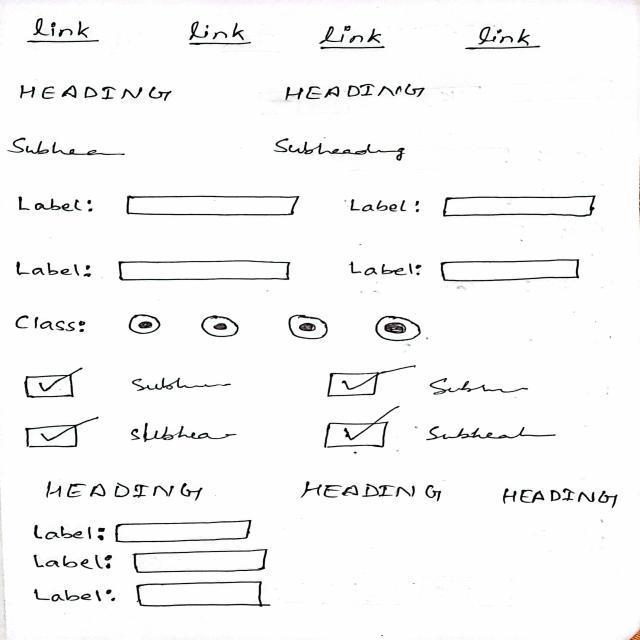 link link link link
HEADING HEADING
Subhea Subheading
Label: Label:
Label: Label:
Class:
HEADING HEADING HEADING
Label:
Label:
Label: